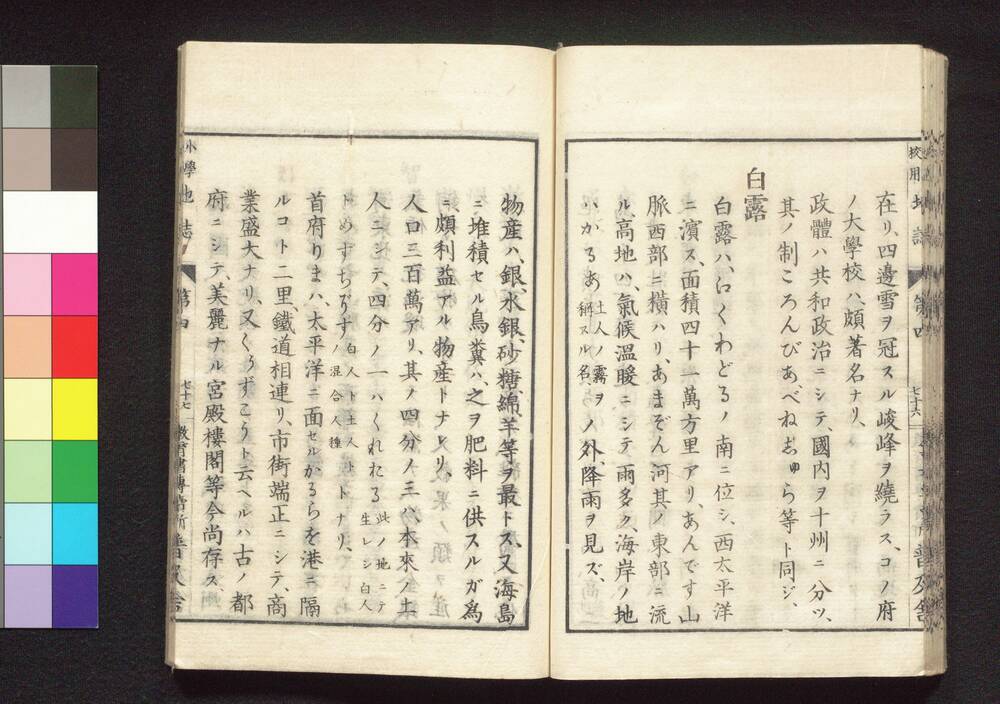 在リ、四邊雪ヲ冠スル峻峰ヲ繞ラス、コノ府
ノ大學校ハ、頗著名ナリ、
政體ハ共和政治ニシテ、國内ヲ十州ニ分ツ、
其ノ制ころんびあべねぢゅら等ト同ジ、
白露
白露ハ、ゑくわどるノ南ニ位シ、西太平洋
ニ濱ス、面積四十一萬方里アリ、あんです山
脈西部ニ横ハリ、あまぞん河其ノ東部ニ流
ル、高地ハ、氣候溫暖ニシテ雨多ク、海岸ノ地
ハかるあ土人ノ霧ヲ稱スル名ノ外、降雨ヲ見ズ、
校用
第四
七十六
普及舍
物產ハ、銀、水銀、砂糖、綿羊等ヲ最トス、又海島
ニ堆積セル鳥糞ハ、之ヲ肥料ニ供スルガ為
ニ頗利益アル物產トナレリ、
人口三百萬アリ、其ノ四分ノ三ハ、本來ノ土
人ニシテ、四分ノ一ハくれおる此ノ地ニテ生レシ白人
トめすちぞす白人ト土人トノ混合人種トナリ、
首府りまハ、太平洋ニ面セルかるらを港ニ隔
ルコト二里、鐵道相連リ、市街端正ニシテ、商
業盛大ナリ、又くうずこうト云ヘルハ古ノ都
府ニシテ、美麗ナル宮殿樓閣等今尚存ス
小學地誌
第四
七十七
教育書專賣所普及舍